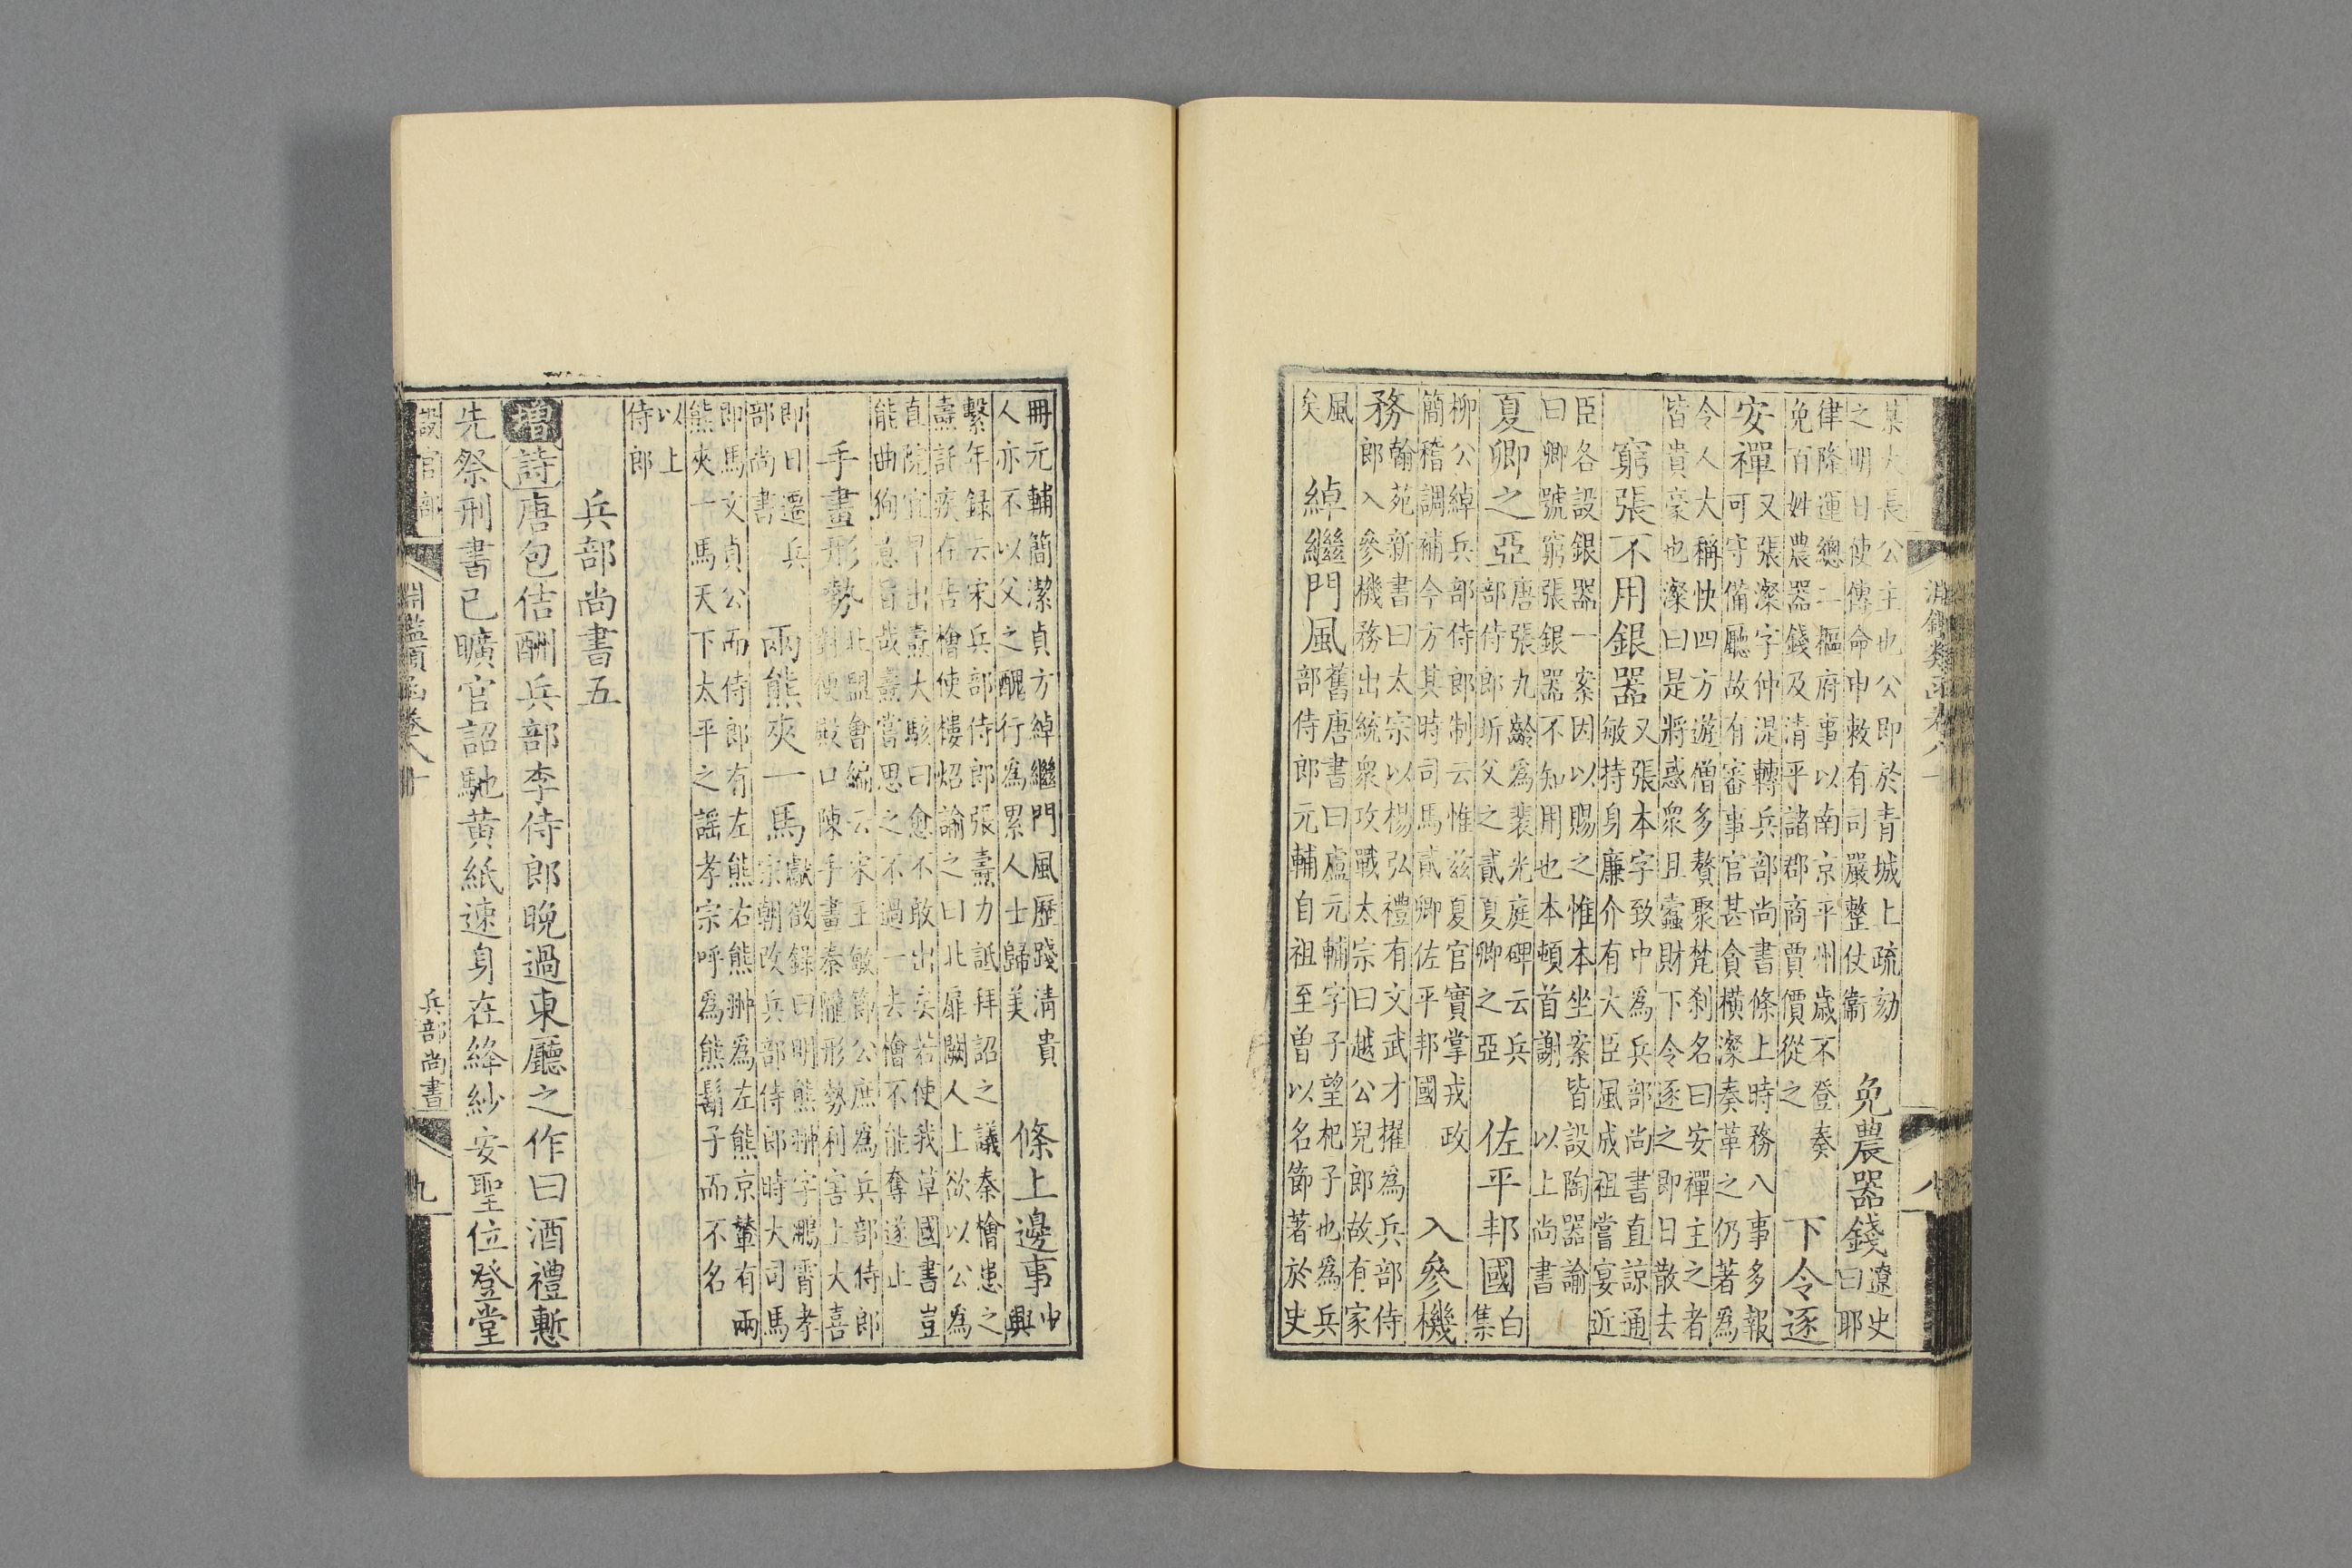 某大長公主也公即於青城上疏劾
之明日使傳命申敕有司嚴整仗衞
免農器錢
遼史
曰耶
律隆運總二樞府事以南京平州歲不登奏
免百姓農器錢及清平諸郡商賈價從之
下令逐
安禪
又張濚字仲湜轉兵部尚書條上時務八事多報
可守備廳故有審事官甚貪橫濚奏革之仍著為
令人大稱快四方遊僧多贅聚梵剎名曰安禪主之者
皆貴豪也濚曰是將惑衆且蠧財下令逐之即日散去
窮張不用銀器
又張本字致中為兵部尚書直諒通
敏持身廉介有大臣風成祖嘗宴近
臣各設銀器一案因以賜之惟本坐案皆設陶器諭
曰卿號窮張銀器不知用也本頓首謝 以上尚書
夏卿之亞
唐張九齡為裴光庭碑云兵
部侍郎圻父之貳夏卿之亞
佐平邦國
白
集
柳公綽兵部侍郎制云惟兹夏官實掌戎政
簡稽調補今方其時司馬貳卿佐平邦國
入參機
務
翰苑新書曰太宗以楊弘禮有文武才擢為兵部侍
郎入參機務出統衆攻戰太宗曰越公兒郎故有家
風
矣
綽繼門風
舊唐書曰盧元輔字子望杞子也為兵
部侍郎元輔自祖至曾以名節著於史
冊元輔簡潔貞方綽繼門風歷踐清貴
人亦不以父之醜行為累人士歸美
條上邊事
中
興
繫年録云宋兵部侍郎張燾力詆拜詔之議秦檜患之
燾託疾在告檜使樓炤諭之曰北扉闕人上欲以公為
直院宜早出燾大駭曰愈不敢出矣若使我草國書豈
能曲狥意旨哉燾嘗思之不過一去檜不能奪遂止
手畫形勢
北盟會編云宋王敏節公庶為兵部侍郎
對便殿口陳手畫秦隴形勢利害上大喜
即日遷兵
部尚書
兩熊夾一馬
獻徵録曰明熊翀字鵬霄孝
宗朝改兵部侍郎時大司馬
即馬文貞公而侍郎有左熊右熊翀為左熊京輦有兩
熊夾一馬天下太平之謡孝宗呼為熊鬍子而不名
以上
侍郎
兵部尚書五
増詩唐包佶酬兵部李侍郎晚過東廳之作曰酒禮慙
先祭刑書已曠官詔馳黄紙速身在絳紗安聖位登堂
淵鑑類函卷八十
兵部尚書
九